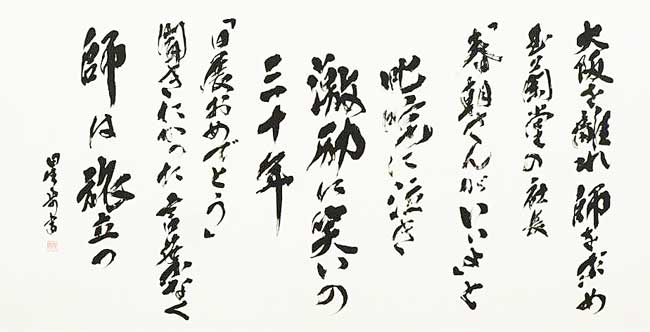 大阪を離れ師を求め
玉蘭堂の社長
「春朝さんがいいよ」と
叱咤に泣き
激励に笑いの
三十年
「日展おめでとう」
聞きたかった言葉なく
師は旅立つ